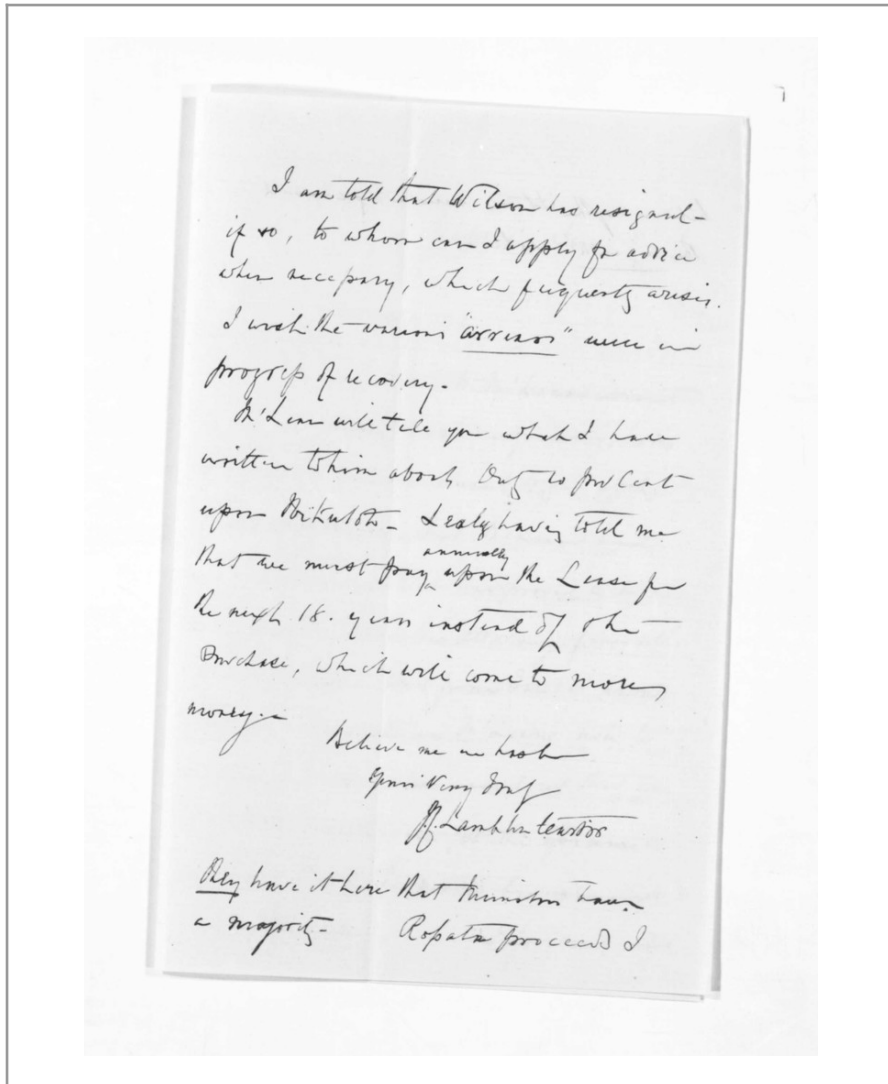 I am told that Wilson has resigned -
if so, to whom can I apply for advice
when necessary, which frequently arises.
I wish the various "arrears" were in
progress of recovery -
McLean will tell you what I have
written to him about Duty 10 pr Cent
upon - having told me
that we must pay annually upon the Lease for
the next 18. years instead of the
Purchase, which will come to more
money. -
Believe me in haste
Yours Very Truly

They have it here that Ministers have
a majority - Ropata proceeds I